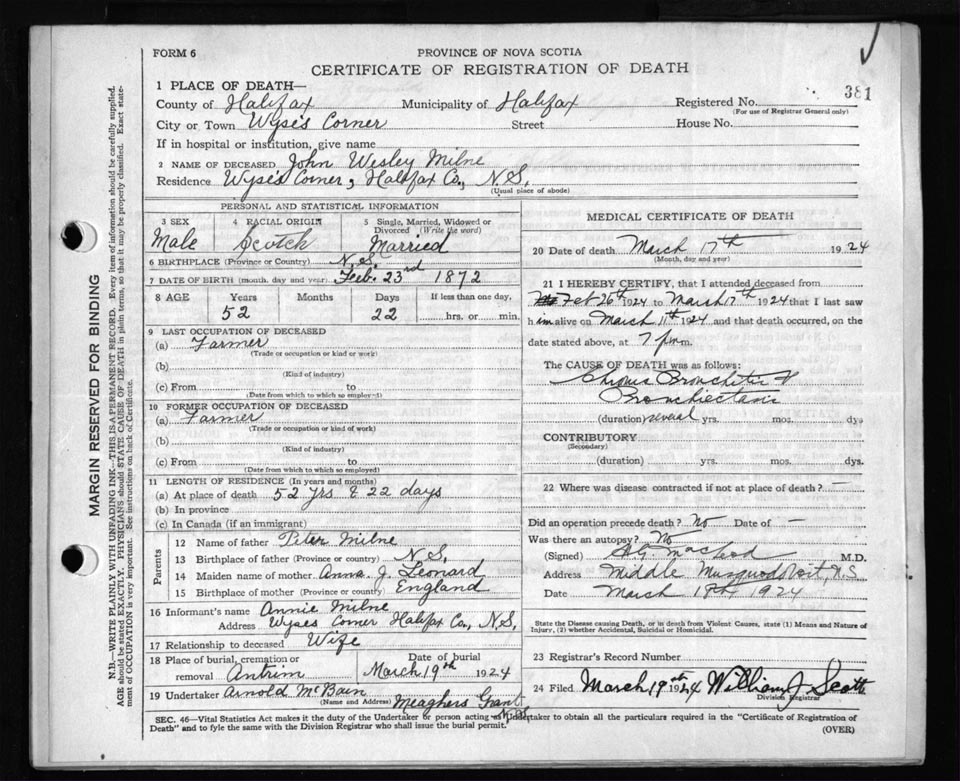 FORM 6
PROVINCE OF NOVA SCOTIA
CERTIFICATE OF REGISTRATION OF DEATH
381
1 PLACE OF DEATH—
County of Halifax Municipality of Halifax Registered No.
(For use of Registrar General only)
City or Town Wyse's Corner Street House No.
If in hospital or institution, give name
2 NAME OF DECEASED John Wesley Milne
Residence Wyse's Corner, Halifax Co., N.S.
(Usual place of abode)
PERSONAL AND STATISTICAL INFORMATION
3 SEX 4 RACIAL ORIGIN 5 Single, Married, Widowed or Divorced (Write the word)
Male Scotch Married
6 BIRTHPLACE (Province or Country) N.S.
7 DATE OF BIRTH (month, day and year) Feb. 23rd 1872
8 AGE Years Months Days If less than one day,
52 22 hrs. or min.
9 LAST OCCUPATION OF DECEASED
(a) Farmer
(Trade or occupation or kind or work)
(b)
(Kind of industry)
(c) From to
(Date from which to which so employed)
10 FORMER OCCUPATION OF DECEASED
(a) Farmer
(Trade or occupation or kind of work)
(b)
(Kind of industry)
(c) From to
(Date from which to which so employed)
11 LENGTH OF RESIDENCE (In years and months)
(a) At place of death 52 yrs & 22 days
(b) In province
(c) In Canada (if an immigrant)
Parents
12 Name of father Peter Milne
13 Birthplace of father (Province or country) N.S.
14 Maiden name of mother Anna J. Leonard
15 Birthplace of mother (Province or country) England
16 Informant's name Annie Milne
Address Wyses Corner Halifax Co., N.S.
17 Relationship to deceased Wife
18 Place of burial, cremation or removal Antrim Date of burial March 19th 1924
19 Undertaker Arnold McBain
(Name and Address) Meaghers Grant N.S.
MEDICAL CERTIFICATE OF DEATH
20 Date of death March 17th 1924
(Month, day and year)
21 I HEREBY CERTIFY, that I attended deceased from
Feb 26th 1924 to March 17th 1924 that I last saw
him alive on March 11th 1924 and that death occurred, on the
date stated above, at 7 p.m.
The CAUSE OF DEATH was as follows:
Chronic Bronchitis &
Bronchiectasis
(duration) several yrs. mos. dys
CONTRIBUTORY
(Secondary)
(duration) yrs. mos. dys.
22 Where was disease contracted if not at place of death? —
Did an operation precede death? No Date of —
Was there an autopsy? No
(Signed) MacLeod M.D.
Address Middle Musquodoboit, N.S.
Date March 18th 1924
State the Disease causing Death, or in death from Violent Causes, state (1) Means and Nature of Injury, (2) whether Accidental, Suicidal or Homicidal.
23 Registrar's Record Number
24 Filed March 19th 1924 William J. Scott
Division Registrar
SEC. 46—Vital Statistics Act makes it the duty of the Undertaker or person acting as Undertaker to obtain all the particulars required in the "Certificate of Registration of
Death" and to fyle the same with the Division Registrar who shall issue the burial permit.
(OVER)
MARGIN RESERVED FOR BINDING
N.B.—WRITE PLAINLY WITH UNFADING INK—THIS IS A PERMANENT RECORD. Every item of information should be carefully supplied.
AGE should be stated EXACTLY. PHYSICIANS should STATE CAUSE OF DEATH in plain terms, so that it may be properly classified. Exact statement
of OCCUPATION is very important. See instructions on back of Certificate.